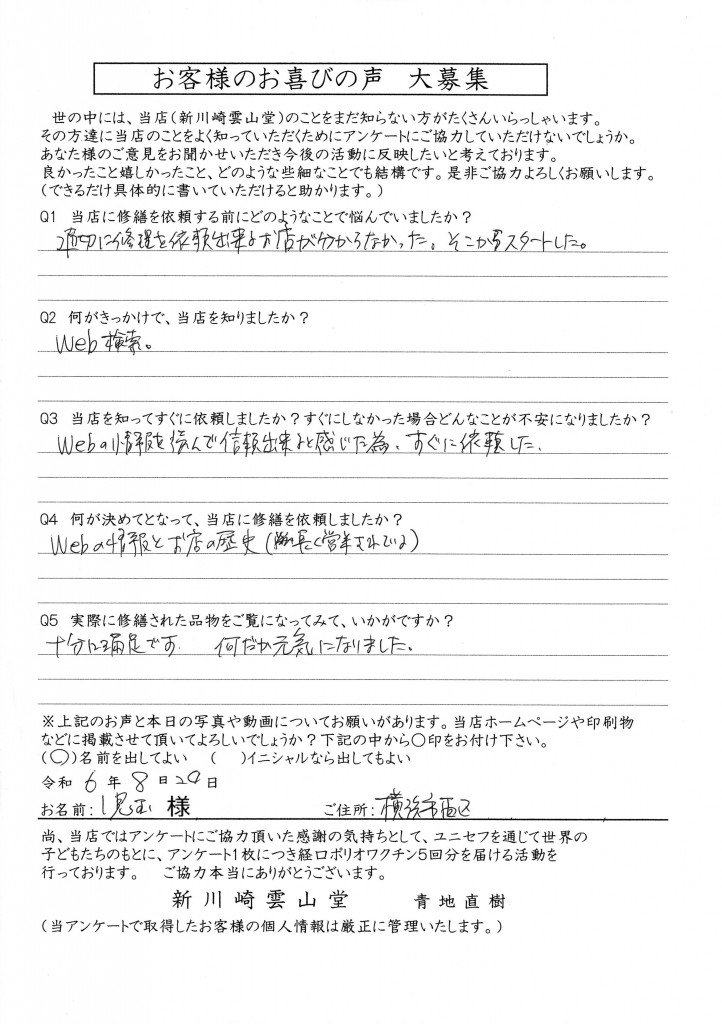 お客様のお喜びの声 大募集
世の中には、当店(新川崎雲山堂)のことをまだ知らない方がたくさんいらっしゃいます。
その方達に当店のことをよく知っていただくためにアンケートにご協力していただけないでしょうか。
あなた様のご意見をお聞かせいただき今後の活動に反映したいと考えております。
良かったこと嬉しかったこと、どのような些細なことでも結構です。是非ご協力よろしくお願いします。
(できるだけ具体的に書いていただけると助かります。)
Q1 当店に修繕を依頼する前にどのようなことで悩んでいましたか?
適切に修理を依頼出来るお店が分からなかった。そこからスタートした。
Q2 何がきっかけで、当店を知りましたか?
Web検索。
Q3 当店を知ってすぐに依頼しましたか?すぐにしなかった場合どんなことが不安になりましたか?
Webの情報を読んで信頼出来ると感じた為、すぐに依頼した。
Q4 何が決めてとなって、当店に修繕を依頼しましたか?
Webの情報とお店の歴史(長く営業されている)
Q5 実際に修繕された品物をご覧になってみて、いかがですか?
十分に満足です 何だか元気になりました。
※上記のお声と本日の写真や動画についてお願いがあります。当店ホームページや印刷物
などに掲載させて頂いてよろしいでしょうか?下記の中から○印をお付け下さい。
(○)名前を出してよい ( )イニシャルなら出してもよい
令和 6 年 8 日 20 日
お名前: 児玉 様 ご住所: 横浜市西区
尚、当店ではアンケートにご協力頂いた感謝の気持ちとして、ユニセフを通じて世界の
子どもたちのもとに、アンケート1枚につき経口ポリオワクチン5回分を届ける活動を
行っております。 ご協力本当にありがとうございます。
新川崎雲山堂 青地直樹
(当アンケートで取得したお客様の個人情報は厳正に管理いたします。)